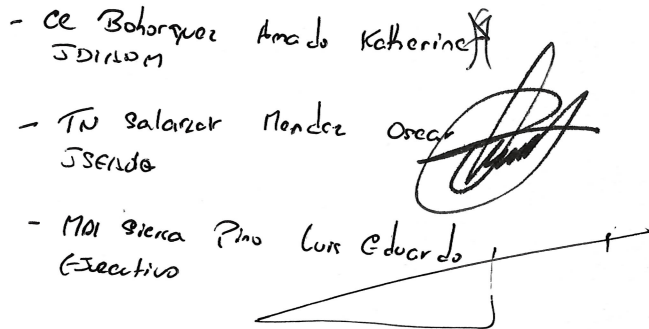 - CC Bohorquez Amado Katherine
JDINOM
- TN Salazar Mendez Oscar
- MA1 Sierra Pino Luis Eduardo
Ejecutivo